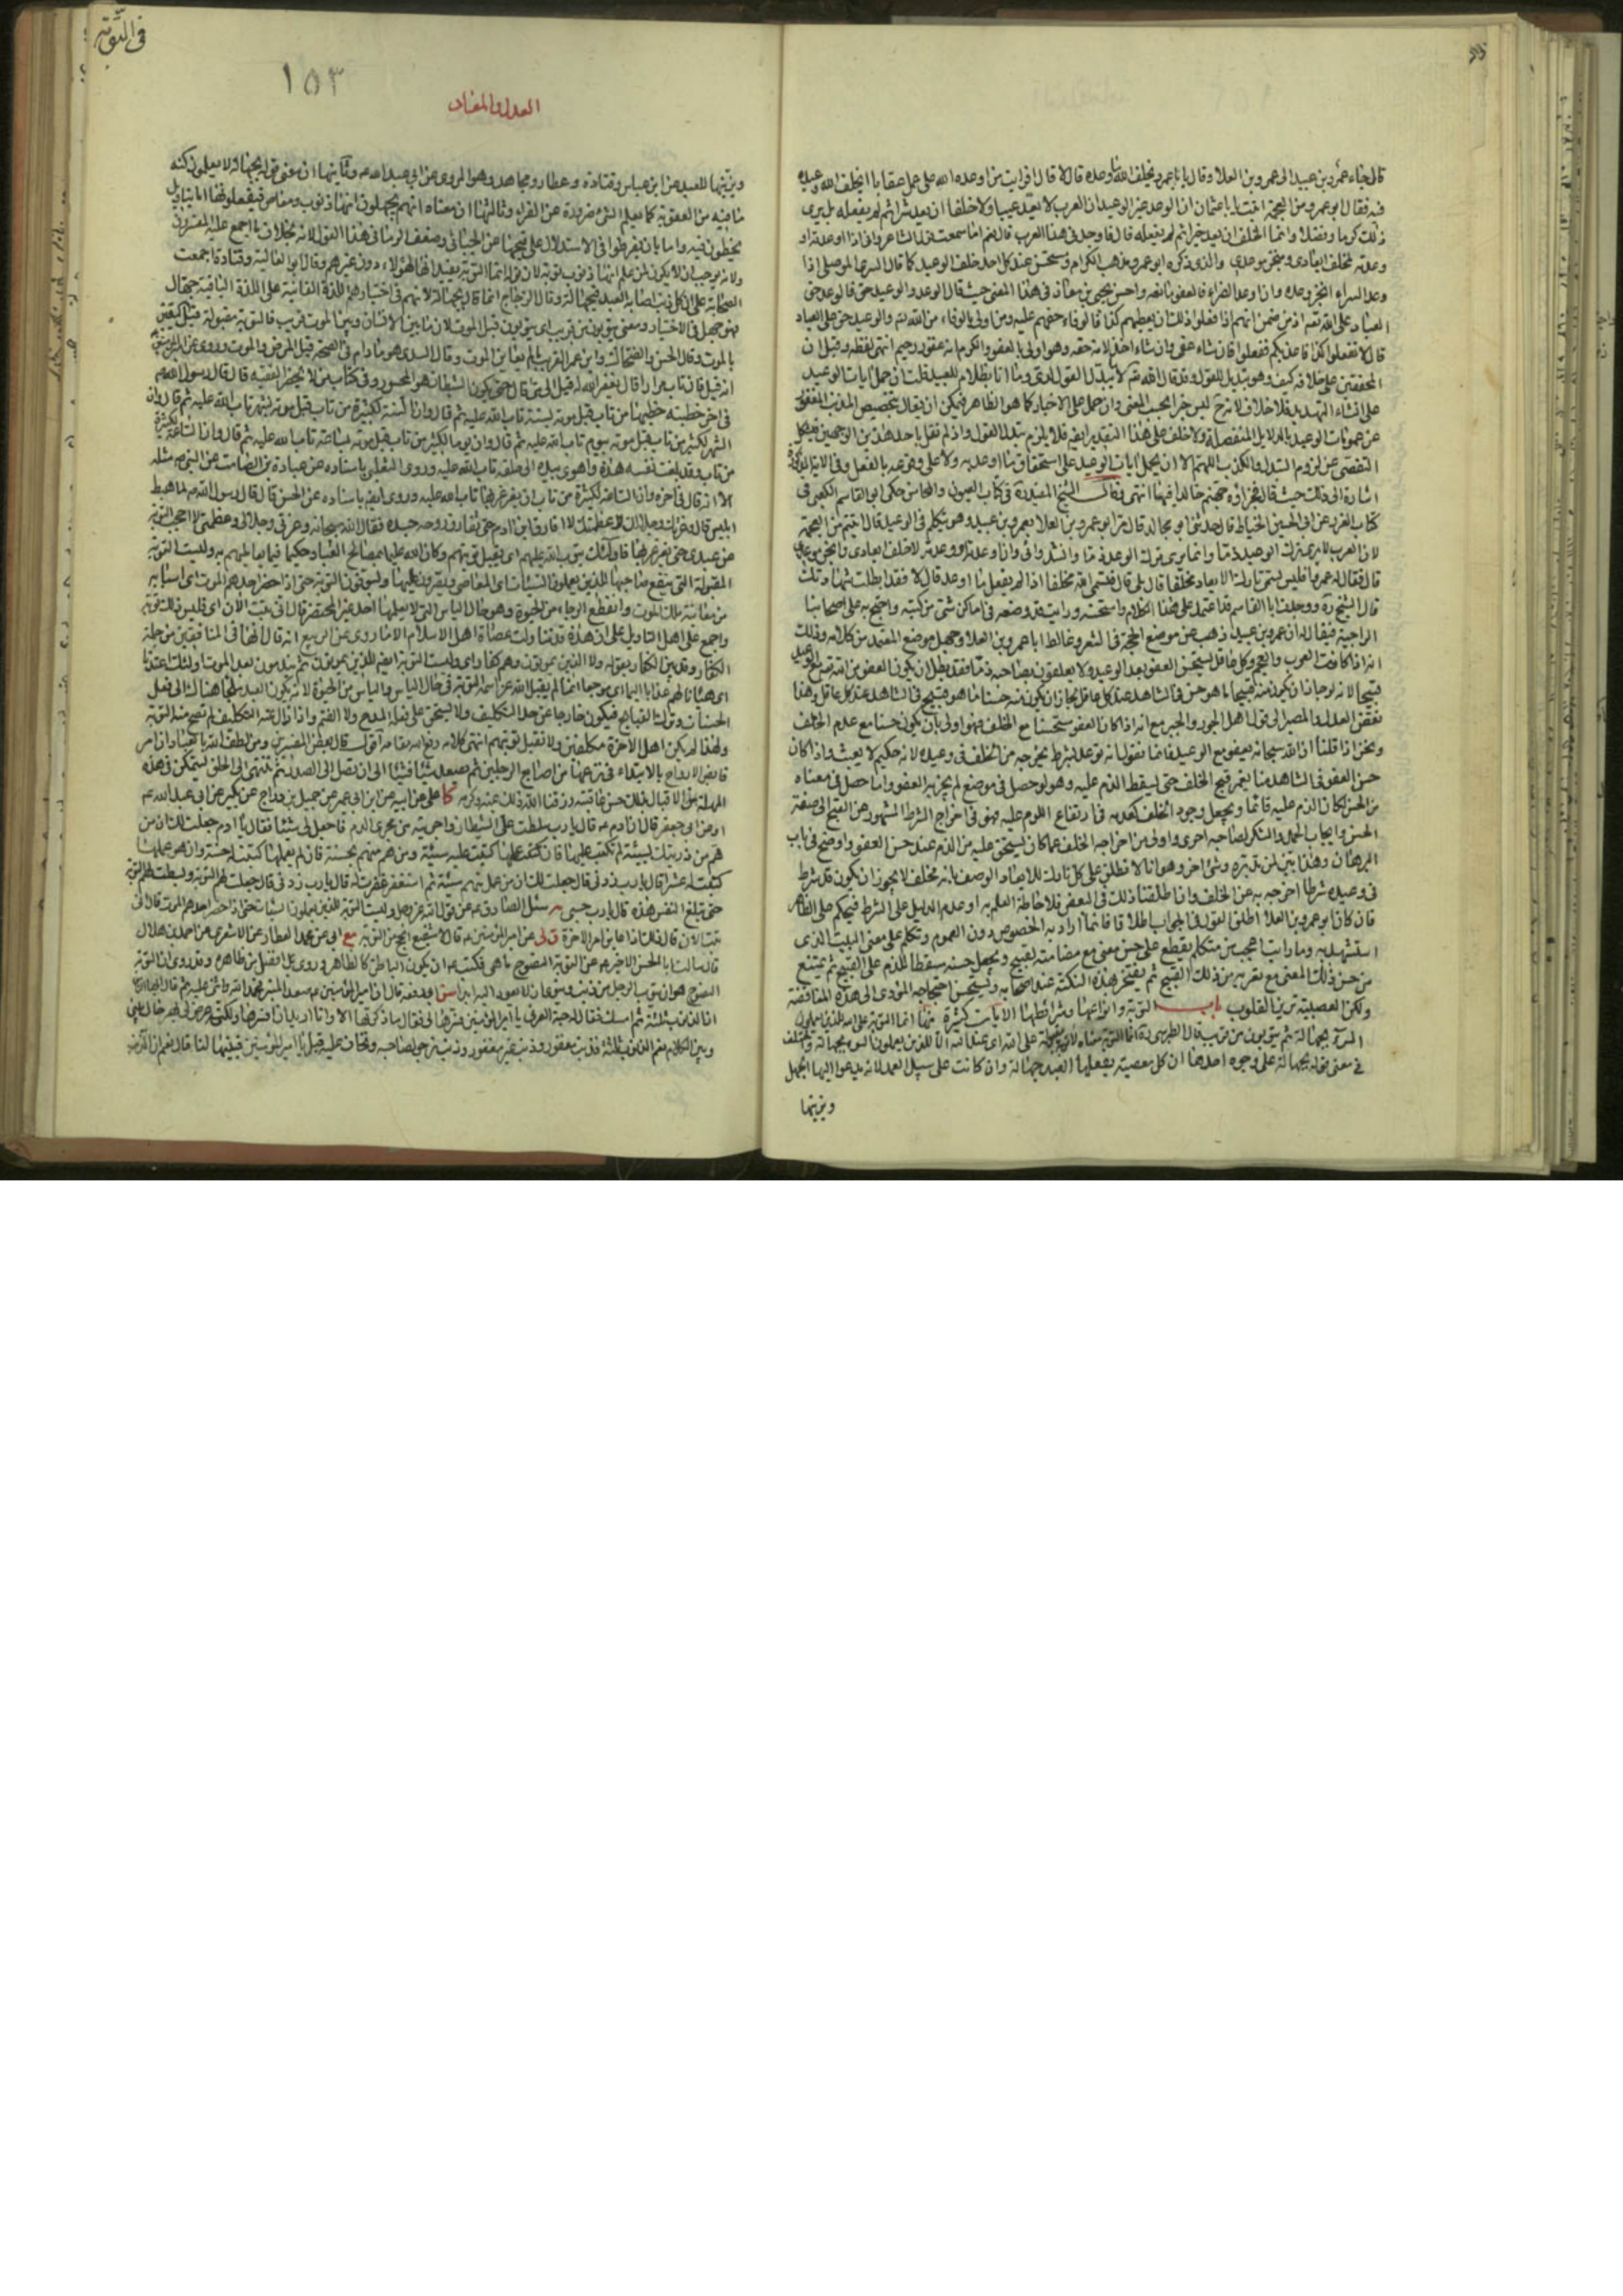 قال جاء عمرو بن عبيد الى عمرو بن العلا وقال يا با عمرو يخلف الله وعده قال لا قال افرايت من اوعده الله على عمل عقابا ايخلف الله وعيده
فيه فقال ابو عمرو من العجمة اتيت يا با عثمان ان الوعد غير الوعيد ان العرب لا تعد عيبا ولا خلفا ان تعد شرا ثم لم تفعله بل يرى
ذلك كرما وفضلا وانما الخلف ان تعد خيرا ثم لم تفعله قال فاوجدنى هذا العرب قال نعم اما سمعت قول الشاعر وانى اذا اوعدته او
وعدته لمخلف ايعادى ومنجز موعدى والذى ذكره ابو عمرو مذهب الكرام ومستحسن عند كل احد خلف الوعيد كما قال السرى الموصلى اذا
وعد السراء انجز وعده وان اوعد الضراء فالعفو مانعه واحسن يحيى بن معاذ فى هذا المعنى حيث قال الوعد والوعيد حق فالوعد حق
العباد على الله تعم اذ من ضمن انهم اذا فعلوا ذلك ان يعطيهم كذا فالوفاء حقهم عليه ومن اولى بالوفاء من الله تعم والوعيد حق على العباد
قال لا تفعلوا كذا فاعذبكم ففعلوا فان شاء عفى وان شاء اخذ لانه حقه وهو اولى بالعفو والكرم انه غفور رحيم انتهى لفظه وقيل ان
المحققين على خلافه كيف وهو تبديل للقول وقد قال الله تعم لا يبدل القول لدى وما انا بظلام للعبيد قلت ان حمل ايات الوعيد
على انشاء التهديد فلا خلاف لانه ح ليس خبرا بحسب المعنى وان حمل على الاخبار كما هو الظاهر فيمكن ان يقال بتخصيص المذنب المغفور
عن عمومات الوعيد بالدلايل المنفصلة ولا خلف على هذا التقدير ايضه فلا يلزم تبدل القول واذ لم نقل باحد هذين الوجهين فيشكل
التفصى عن لزوم التبدل والكذب اللهم الا ان يحمل ايات الوعيد على استحقاق ما اوعد به ولا على وقوعه بالفعل وفى الاية المذكورة
اشارة الى ذلك حيث قال فجزاؤه جهنم خالدا فيها انتهى وقال الشيخ المفيد ره فى كتاب العيون والمحاسن حكى ابو القاسم الكعبى فى
كتاب الغرر عن ابى الحسين الخياط قال حدثنى ابو مجالد قال مر ابو عمرو بن العلا بعمرو بن عبيد وهو يتكلم فى الوعيد قال انما اتيتم من العجمة
لان العرب لا يرى ترك الوعيد ذما وانما يرى ترك الوعد ذما وانشد وانى وان اوعدته او وعدته لاخلف ايعادى وانجز موعدى
قال فقال له عمرو افليس يسمى تارك الايعاد مخلفا قال بلى قال فتسمى الله مخلفا اذا لم يفعل ما اوعد قال لا قال فقد ابطلت شهادتك
قال الشيخ ره ووجدت ابا القاسم قد اعتمد على هذا الكلام واستحسنه ورايته قد وضعه فى اماكن شتى من كتبه واحتج به على اصحابنا
الراجية فيقال له ان عمرو بن عبيد ذهب عن موضع الحجة فى الشعر وغالط ابا عمرو بن العلا وجهل موضع المعتمد من كلامه وذلك
انه اذا كانت العرب والعجم وكل عاقل يستحسن العفو بعد الوعيد ولا يعلقون بصاحبه ذما فقد بطل ان يكون العفو من الله تعم مع الوعيد
قبيحا لانه لو جاز ان يكون منه قبيحا ما هو حسن فى الشاهد عند كل عاقل لجاز ان يكون منه حسنا ما هو قبيح فى الشاهد عند كل عاقل وهذا
نقض العدل والمصير الى قول اهل الجور والجبر مع انه اذا كان العفو مستحسنا مع الخلف فهو اولى بان يكون حسنا مع عدم الخلف
ونحن اذا قلنا ان الله سبحانه يعفو مع الوعيد فانما نقول انه توعد بشرط يخرجه من الخلف فى وعيده لانه حكيم لا يعبث واذا كان
حسن العفو فى الشاهد منا يغمر قبح الخلف حتى يسقط الذم عليه وهو لو حصل فى موضع لم يجز به العفو او ما حصل فى معناه
من الحسن لكان الذم عليه قائما ويجعل وجود الخلف كعدمه فى ارتفاع اللوم عليه فهو فى اخراج الشرط المشهور عن القبح الى صفة
الحسن وايجاب الحمد والشكر لصاحبه احرى واولى من اخراجه الخلف عما كان يستحق عليه من الذم عند حسن العفو واوضح فى باب
البرهان وهذا بين لمن تدبره وشئ اخر وهو انا لا نطلق على كل تارك للايعاد الوصف بانه مخلف لانه يجوز ان يكون قد شرط
فى وعيده شرطا اخرجه به عن الخلف وان اطلقنا ذلك فى البعض فلاحاطة العلم به او عدم الدليل على الشرط فيحكم على الظاهر
فان كان ابو عمرو بن العلا اطلق القول فى الجواب اطلاقا فانما اراد به الخصوص دون العموم وتكلم على معنى البيت الذى
استشهد به وما رايت اعجب من متكلم يقطع على حسن معنى مع مضامته لقبيح ويجعل حسنه مسقطا للذم على القبيح ثم يمتنع
من حسن ذلك المعنى مع تعريه من ذلك القبيح ثم يفتخر بهذه النكتة عند اصحابه ويستحسن احتجاجه المؤدى الى هذه المناقضة
ولكن العصبية ترين القلوب باب التوبة وانواعها وشرائطها الايات كثيرة منها انما التوبة على الله للذين يعملون
السوء بجهالة ثم يتوبون من قريب قال الطبرسى ره انما التوبة معناه لا توبة مقبولة على الله اى عند الله الا للذين يعملون السوء بجهالة واختلف
فى معنى قوله بجهالة على وجوه احدها ان كل معصية يفعلها العبد جهالة وان كانت على سبيل العمد لانه يدعوا اليها الجهل
ويزينها
فى التوبة
١٥٣
العدل والمعاد
ويزينها للعبد عن ابن عباس وقتادة وعطا ومجاهد وهو المروى عن ابى عبد الله عه وثانيها ان معنى قوله بجهالة لا يعلمون كنه
ما فيه من العقوبة كما يعلم الشئ ضرورة عن الفراء وثالثها ان معناه انهم يجهلون انها ذنوب ومعاص فيفعلونها اما بتاويل
يخطئون فيه واما بان يفرطوا فى الاستدلال على قبحها عن الجبائى وضعف الرمانى هذا القول لانه بخلاف ما اجمع عليه المفسرون
ولانه يوجب ان لا يكون لمن علم انها ذنوب توبة لان قوله انما التوبة يفيد انها لهؤلاء دون غيرهم وقال ابو العالية وقتادة اجمعت
الصحابة على ان كل ذنب اصابه العبد فبجهالة وقال الزجاج انما قال بجهالة لانهم فى اختيارهم اللذة الفانية على اللذة الباقية جهال
فهو جهل فى الاختيار ومعنى يتوبون من قريب اى يتوبون قبل الموت لان ما بين الانسان وبين الموت قريب فالتوبة مقبولة قبل اليقين
بالموت وقال الحسن والضحاك وابن عمر القريب ما لم يعاين الموت وقال السدى هو ما دام فى الصحة قبل المرض والموت وروى عن امير المؤمنين عه
انه قيل فان تاب مرارا قال يغفر الله له قيل الى متى قال حتى يكون الشيطان هو المحسور وفى كتاب من لا يحضره الفقيه قال قال رسول الله ص
فى اخر خطبة خطبها من تاب قبل موته بسنة تاب الله عليه ثم قال وان السنة لكثيرة من تاب قبل موته بشهر تاب الله عليه ثم قال وان
الشهر لكثير من تاب قبل موته بيوم تاب الله عليه ثم قال وان يوما لكثير من تاب قبل موته بساعة تاب الله عليه ثم قال وان الساعة لكثيرة
من تاب وقد بلغت نفسه هذه واهوى بيده الى حلقه تاب الله عليه وروى الثعلبى باسناده عن عبادة بن الصامت عن النبى ص مثله
الا انه قال فى اخره وان الساعة لكثيرة من تاب ان يغرغر بها تاب الله عليه وروى ايضه باسناده عن الحسن قال قال رسول الله ص لما هبط
ابليس قال وعزتك وجلالك وعظمتك لا افارق ابن ادم حتى يفارق روحه جسده فقال الله سبحانه وعزتى وجلالى وعظمتى لا احجب التوبة
عن عبدى حتى يغرغر بها فاولئك يتوب الله عليهم اى يقبل توبتهم وكان الله عليما بمصالح العباد حكيما فيما يعاملهم به وليست التوبة
المقبولة التى ينتفع صاحبها للذين يعملون السيئات اى المعاصى ويصرون عليها ويسوفون التوبة حتى اذا حضر احدهم الموت اى اسبابه
من معاينة ملك الموت وانقطع الرجاء من الحيوة وهو حال الياس التى لا يعلمها احد غير المحتضر قال انى تبت الان اى فليس لذلك توبة
واجمع على اهل التاويل على ان هذه قد تناولت عصاة اهل الاسلام الا ما روى عن الربيع انه قال انها فى المنافقين من جملة
الكفار وقد بين الكفار بقوله ولا الذين يموتون وهم كفار اى وليست التوبة ايضه للذين يموتون ثم يندمون بعد الموت اولئك اعتدنا
اى هيانا لهم عذابا اليما اى موجعا انما لم يقبل الله عز اسمه التوبة فى حال الياس والياس من الحيوة لانه يكون العبد ملجا هناك الى فعل
الحسنات وترك القبايح فيكون خارجا عن حد التكليف ولا يستحق على فعله المدح ولا الذم واذا زال عنه التكليف لم تصح منه التوبة
ولهذا لم يكن اهل الاخرة مكلفين ولا تقبل توبتهم انتهى كلامه رفع الله مقامه اقول قال بعض المفسرين ومن لطف الله بالعباد ان امر
قابض الارواح بالابتداء فى نزعها من اصابع الرجلين ثم يصعد شيئا فشيئا الى ان تصل الى الصدر ثم تنتهى الى الحلق ليتمكن فى هذه
المهلة من الاقبال كا على عن ابيه عن ابن ابى عمير عن جميل بن دراج عن بكير عن ابى عبد الله عه
او عن ابى جعفر قال ان ادم عه قال يا رب سلطت على الشيطان واجريته من مجرى الدم فاجعل لى شيئا فقال يا ادم جعلت لك ان من
هم من ذريتك بسيئة لم تكتب عليه فان عملها كتبت عليه سيئة ومن هم منهم بحسنة فان لم يعملها كتبت له حسنة وان هو عملها
كتبت له عشرا قال يا رب زدنى قال جعلت لك ان من عمل منهم سيئة ثم استغفر غفرت له قال يا رب زدنى قال جعلت لهم التوبة وبسطت لهم التوبة
حتى تبلغ النفس هذه قال يا رب حسبى يه سئل الصادق عه عن قول الله عز وجل وليست التوبة للذين يعملون السيئات حتى اذا حضر احدهم الموت قال انى
تبت الان قال ذاك اذا عاين امر الاخرة عن امير المؤمنين عه قال لا شفيع انجح من التوبة مع ابى عن محمد العطار عن الاشعرى عن احمد بن هلال
قال سالت ابا الحسن الاخير عه عن التوبة النصوح ما هى فكتب عه ان يكون الباطن كالظاهر وروى بل افضل من ظاهره وقد روى ان التوبة
النصوح هو ان يتوب الرجل من ذنب وينوى ان لا يعود اليه ابدا سن ابى رفعه قال ان امير المؤمنين عه صعد المنبر فحمد الله واثنى عليه ثم قال ايها الناس
ان الذنوب ثلثة ثم امسك فقال له حبة العرنى يا امير المؤمنين فسرها لى فقال ما ذكرتها الا وانا اريد ان افسرها ولكنه عرض لى بهر حال بينى
وبين الكلام نعم الذنوب ثلثة فذنب مغفور وذنب غير مغفور وذنب نرجو لصاحبه ونخاف عليه قيل يا امير المؤمنين فبينها لنا قال نعم اما الذنب